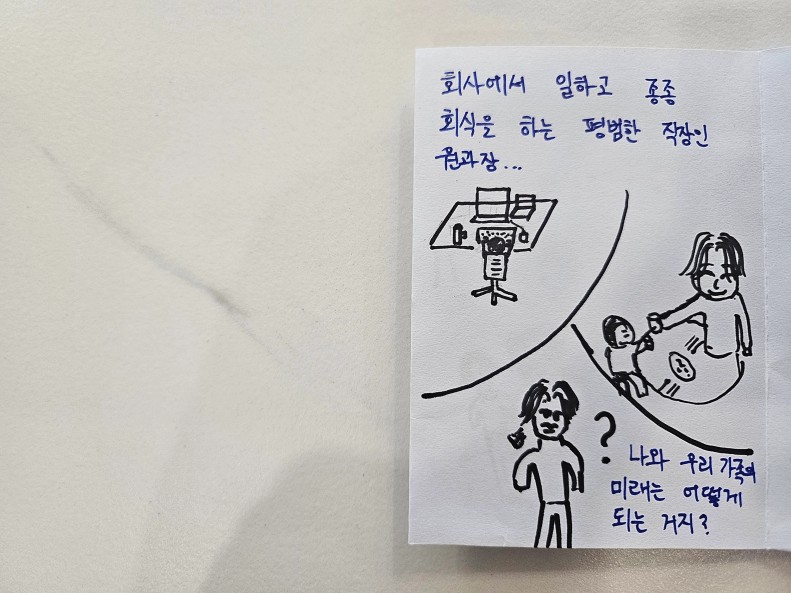 회사에서 일하고 종종
회식을 하는 평범한 직장인
권과장...
?
나와 우리 가족의
미래는 어떻게
되는 거지?